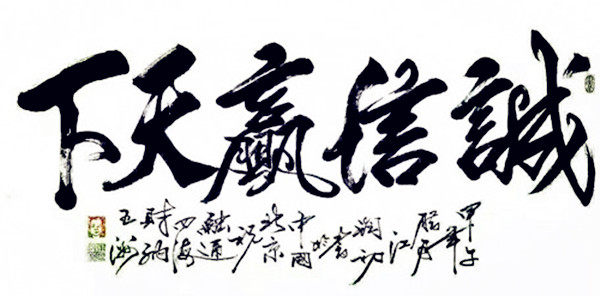 誠信贏天下
甲午年
臘月
江
中國
北京
祝
融通
四海
財納
五洲